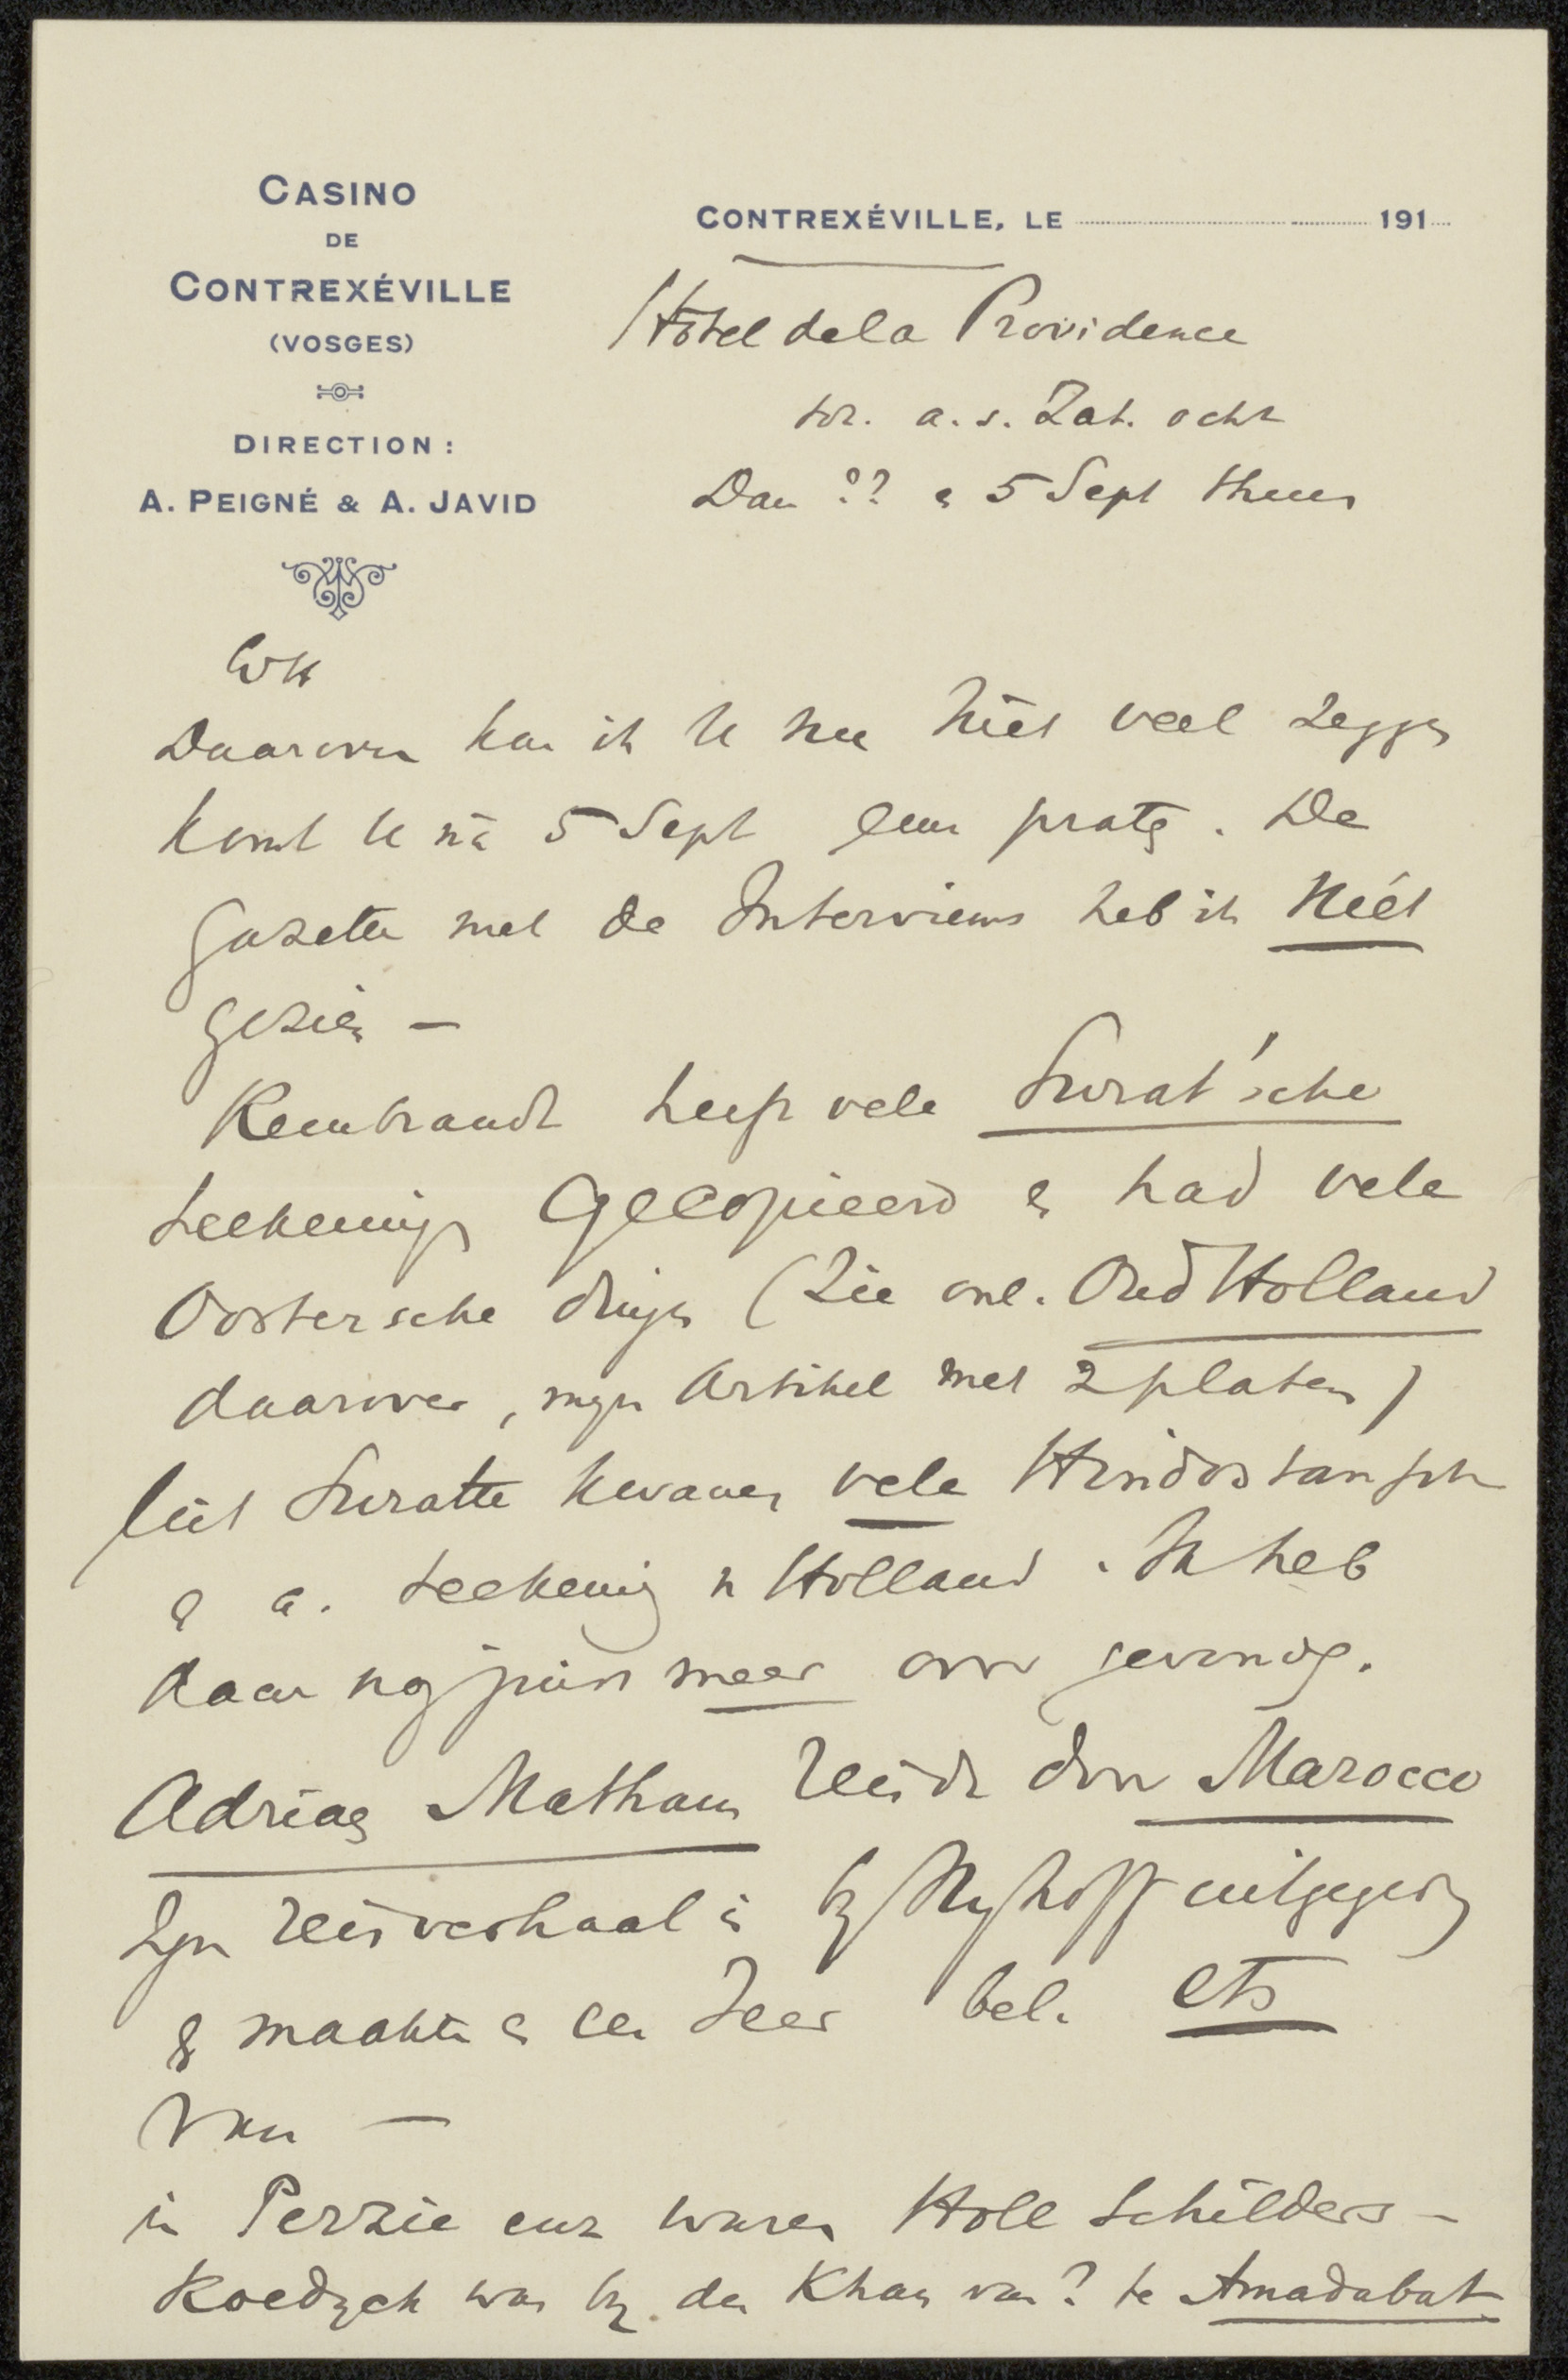 CASINO
DE
CONTREXÉVILLE
(VOSGES)
DIRECTION :
A. PEIGNÉ & A. JAVID
CONTREXÉVILLE, LE 191
Hôtel de la Providence
tot a.s. Zat. ocht
Dan ?? & 5 Sept thuis
Daarover kan ik U nu niet veel zeggen
komt U na 5 Sept eens praten. De
Gazette met de Interviews heb ik niét
gezien —
Rembrandt heeft vele Surat'sche
teekeningen gecopieerd en had vele
Oostersche dingen (Zie onl. Oud Holland
daarover, mijn Artikel met 2 platen)
Uit Suratte kwamen vele Hindostansche
e a. teekening in Holland. Ik heb
daar nog juist meer over gevonden.
Adriaen Matham reisde door Marocco
Zijn reisverhaal is bij Nyhoff uitgegeven
en maakte er een zeer bel. ets
van —
in Perzie enz waren Holl Schilders —
Roedyck was bij den Khan van? te Amadabat